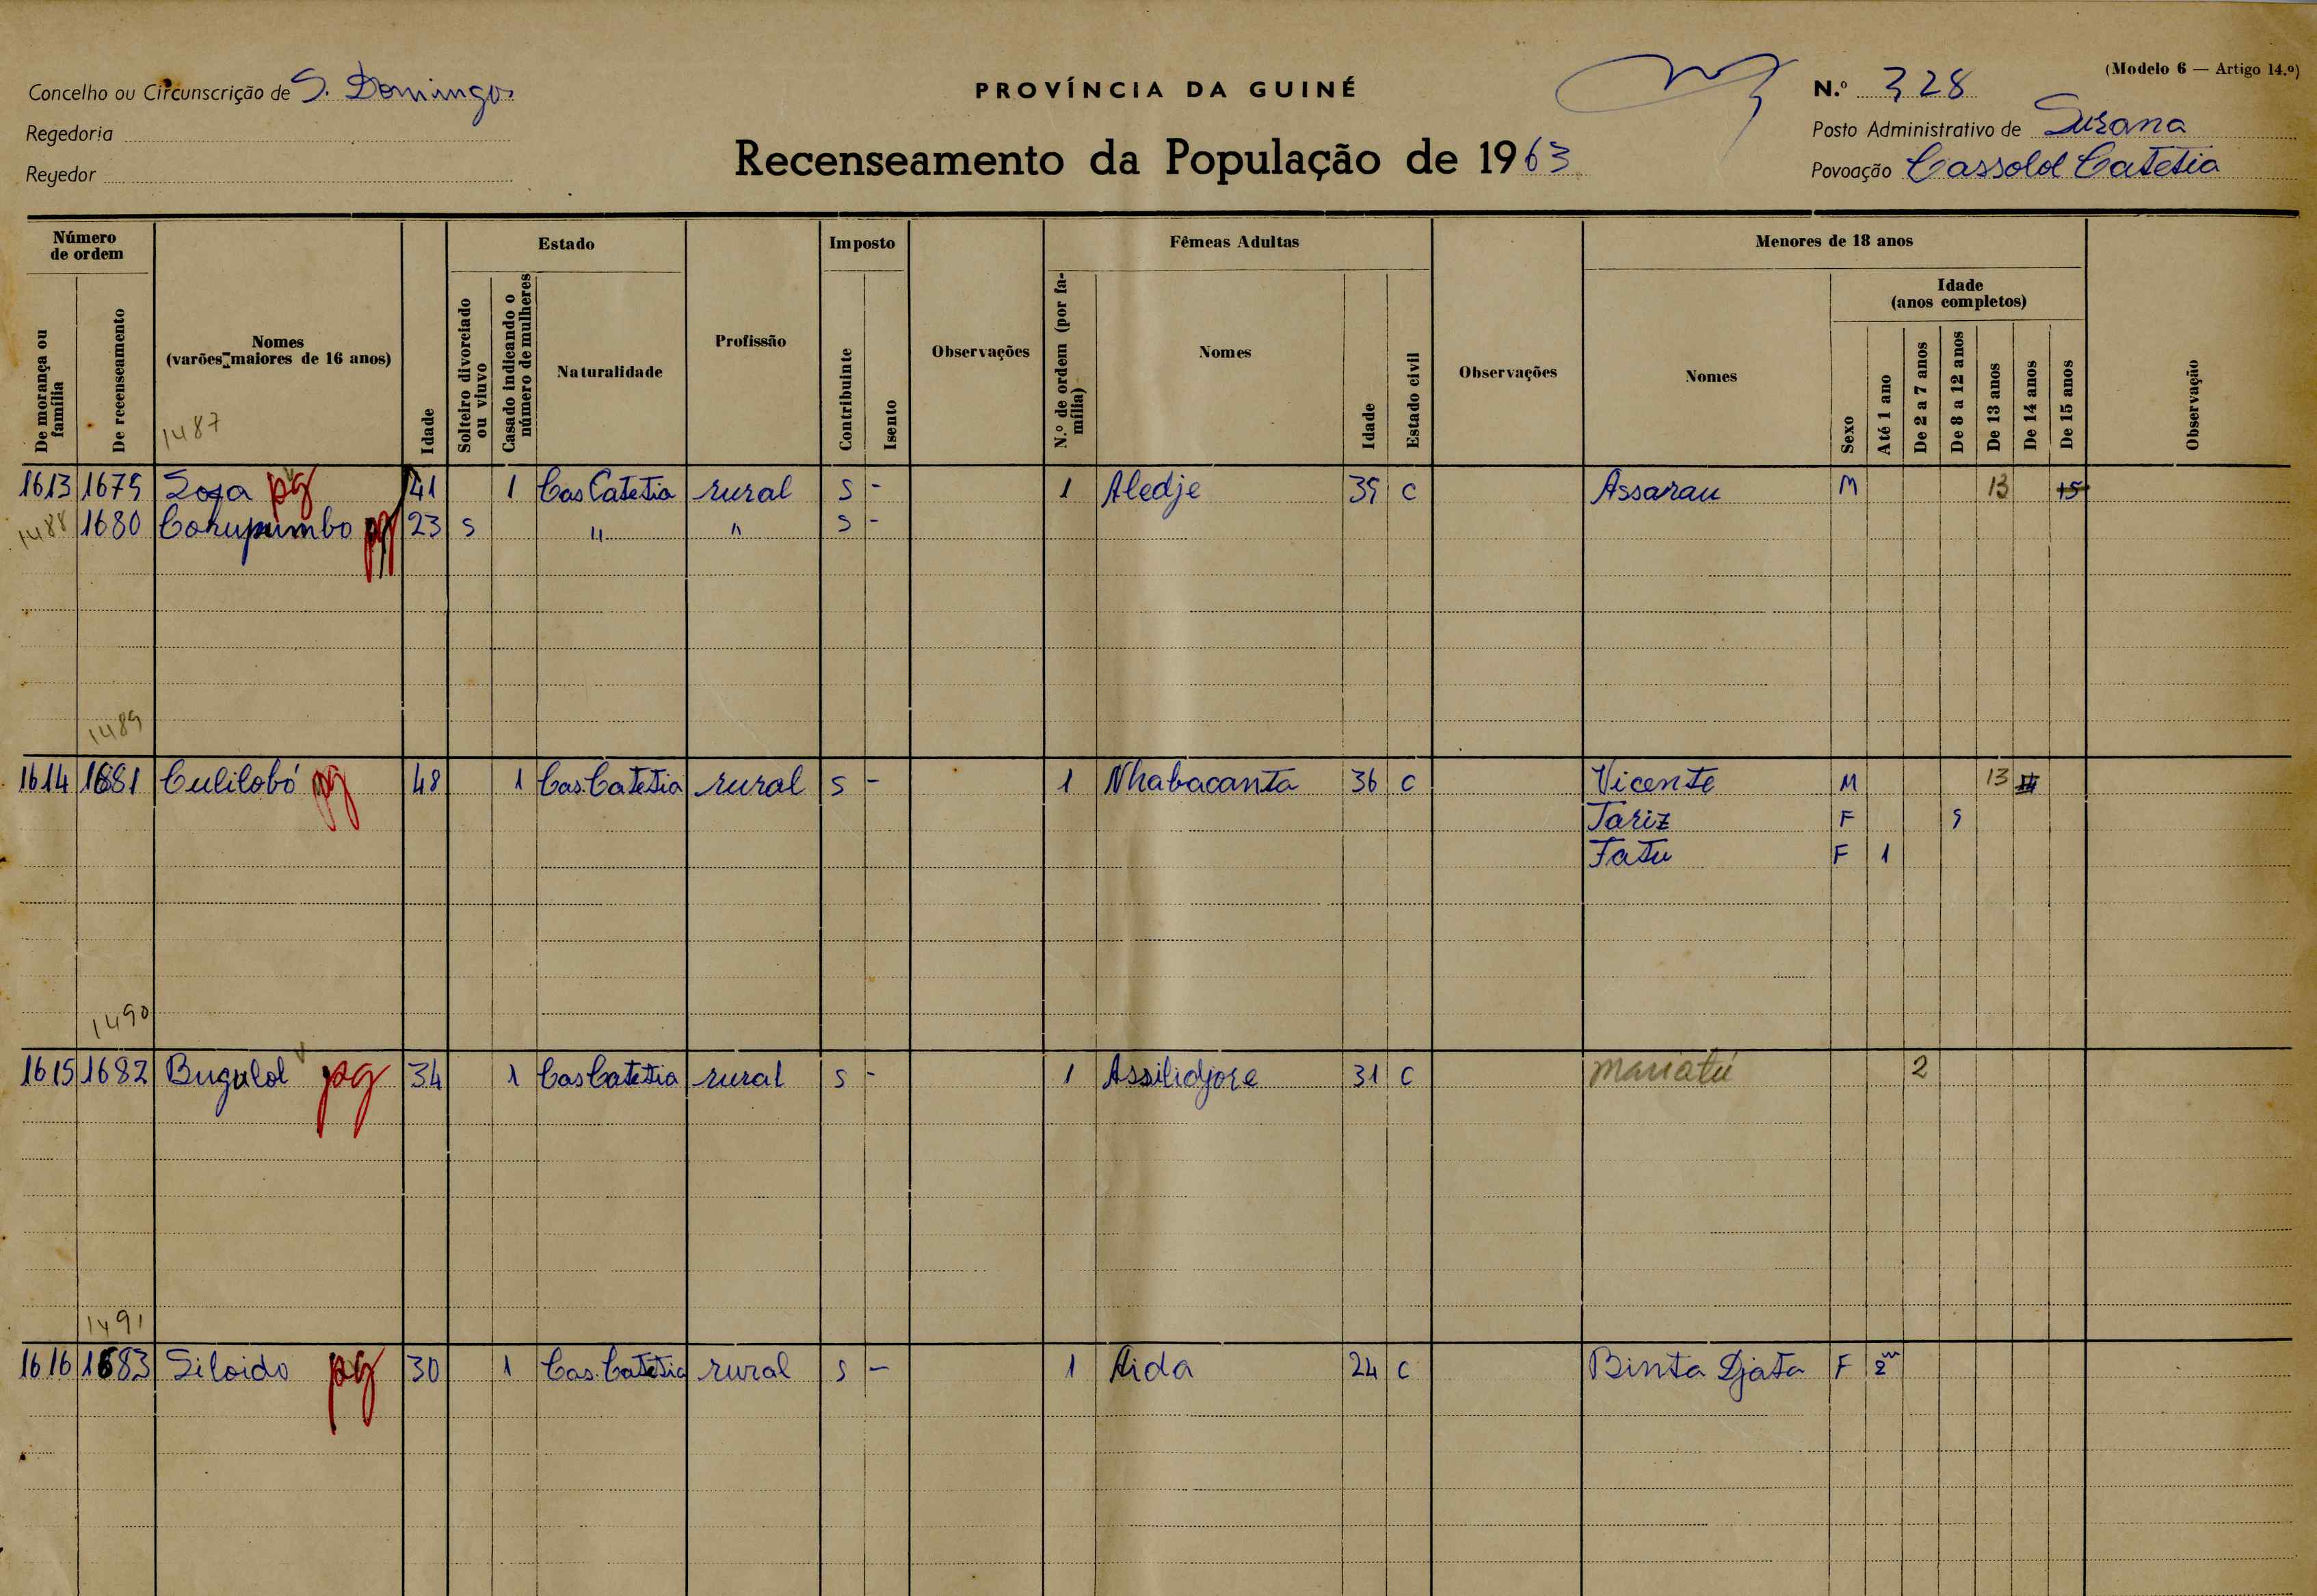 (Modelo 6 — Artigo 14.º)
Concelho ou Circunscrição de S. Domingos
PROVÍNCIA DA GUINÉ
N.º 328
Regedoria
Posto Administrativo de Susana
Recenseamento da População de 1963
Reyedor
Povoação Cassolol Catetia
Número de ordem
Estado
Imposto
Fêmeas Adultas
Menores de 18 anos
Idade (anos completos)
De morança ou família
De recenseamento
Nomes (varões maiores de 16 anos)
Idade
Solteiro divorciado ou viuvo
Casado indicando o número de mulheres
Naturalidade
Profissão
Contribuinte
Isento
Observações
N.º de ordem (por família)
Nomes
Idade
Estado civil
Observações
Nomes
Sexo
Até 1 ano
De 2 a 7 anos
De 8 a 12 anos
De 13 anos
De 14 anos
De 15 anos
Observação
1487
1613 1679 pg 41 1 Cas Catetia rural S - 1 Aledje 39 C Assarau M 13 15
1488 1680 Cohupumbo pg 23 S " " S -
1489
1614 1681 Culilobó pg 48 1 Cas. Catetia rural S - 1 Nhabacanta 36 C Vicente M 13
Tariz F 9
Fatu F 1
1490
1615 1682 Bugulol pg 34 1 Cas Catetia rural S - 1 Assilidjore 31 C Mariatú 2
1491
1616 1683 Siloido pg 30 1 Cas. Catetia rural S - 1 Aida 24 C Binta Djata F 2m